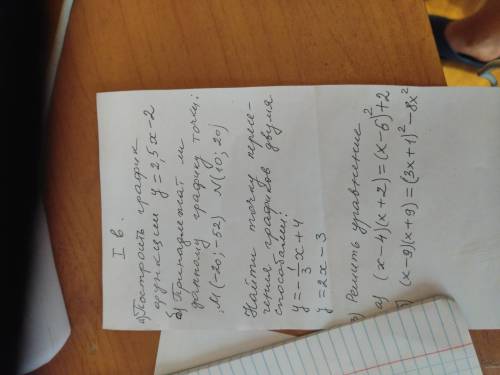 I в.
а) Построить график
функции y = 2,5x - 2
б) Принадлежат ли
данному графику точки:
M(-20; -52) N(10; 20)
Найти точку пересе-
чения графиков двумя
способами:
y = -\frac{1}{3}x + 4
y = 2x - 3
3) Решить уравнение
а) (x-4)(x+2) = (x-6)²+2
(x-9)(x+9) = (3x+1)² - 8x²